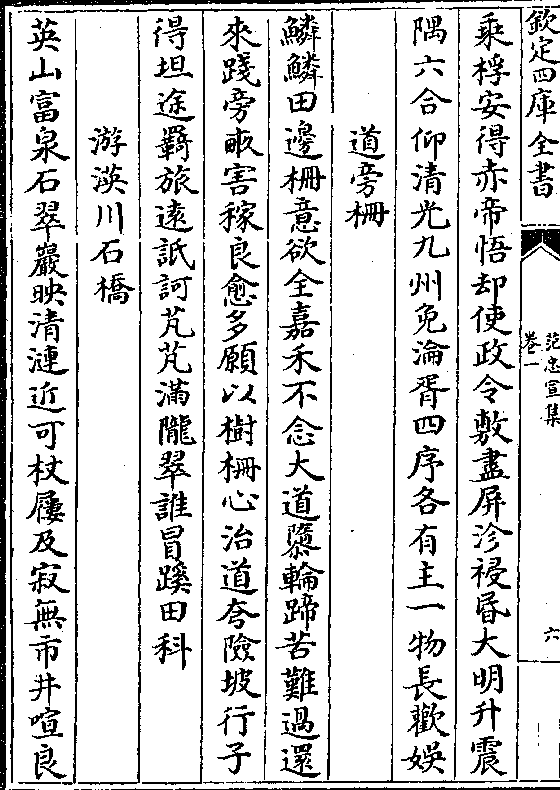 欽定四庫全書
范忠宣集
卷一
六
乘桴安得赤帝悟却使政令敷盡屏沴祲昏大明升震
隅六合仰清光九州免淪胥四序各有主一物長歡娛
道旁柵
鱗鱗田邊柵意欲全嘉禾不念大道隳輪蹄苦難過還
來踐旁畝害稼良愈多願以樹柵心治道夸險坡行子
得坦途羇旅遠詆訶芃芃滿隴翠誰冒蹊田科
游渶川石橋
英山富泉石翠巖映清漣近可杖屨及寂無市井喧良